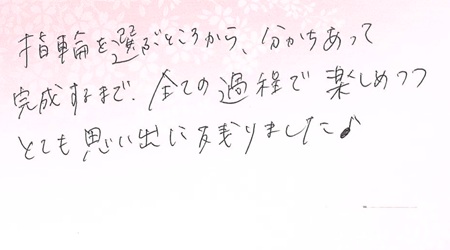 指輪を選ぶところから、分かちあって
完成するまで、全ての過程で楽しめつつ
とても思い出に残りました♪